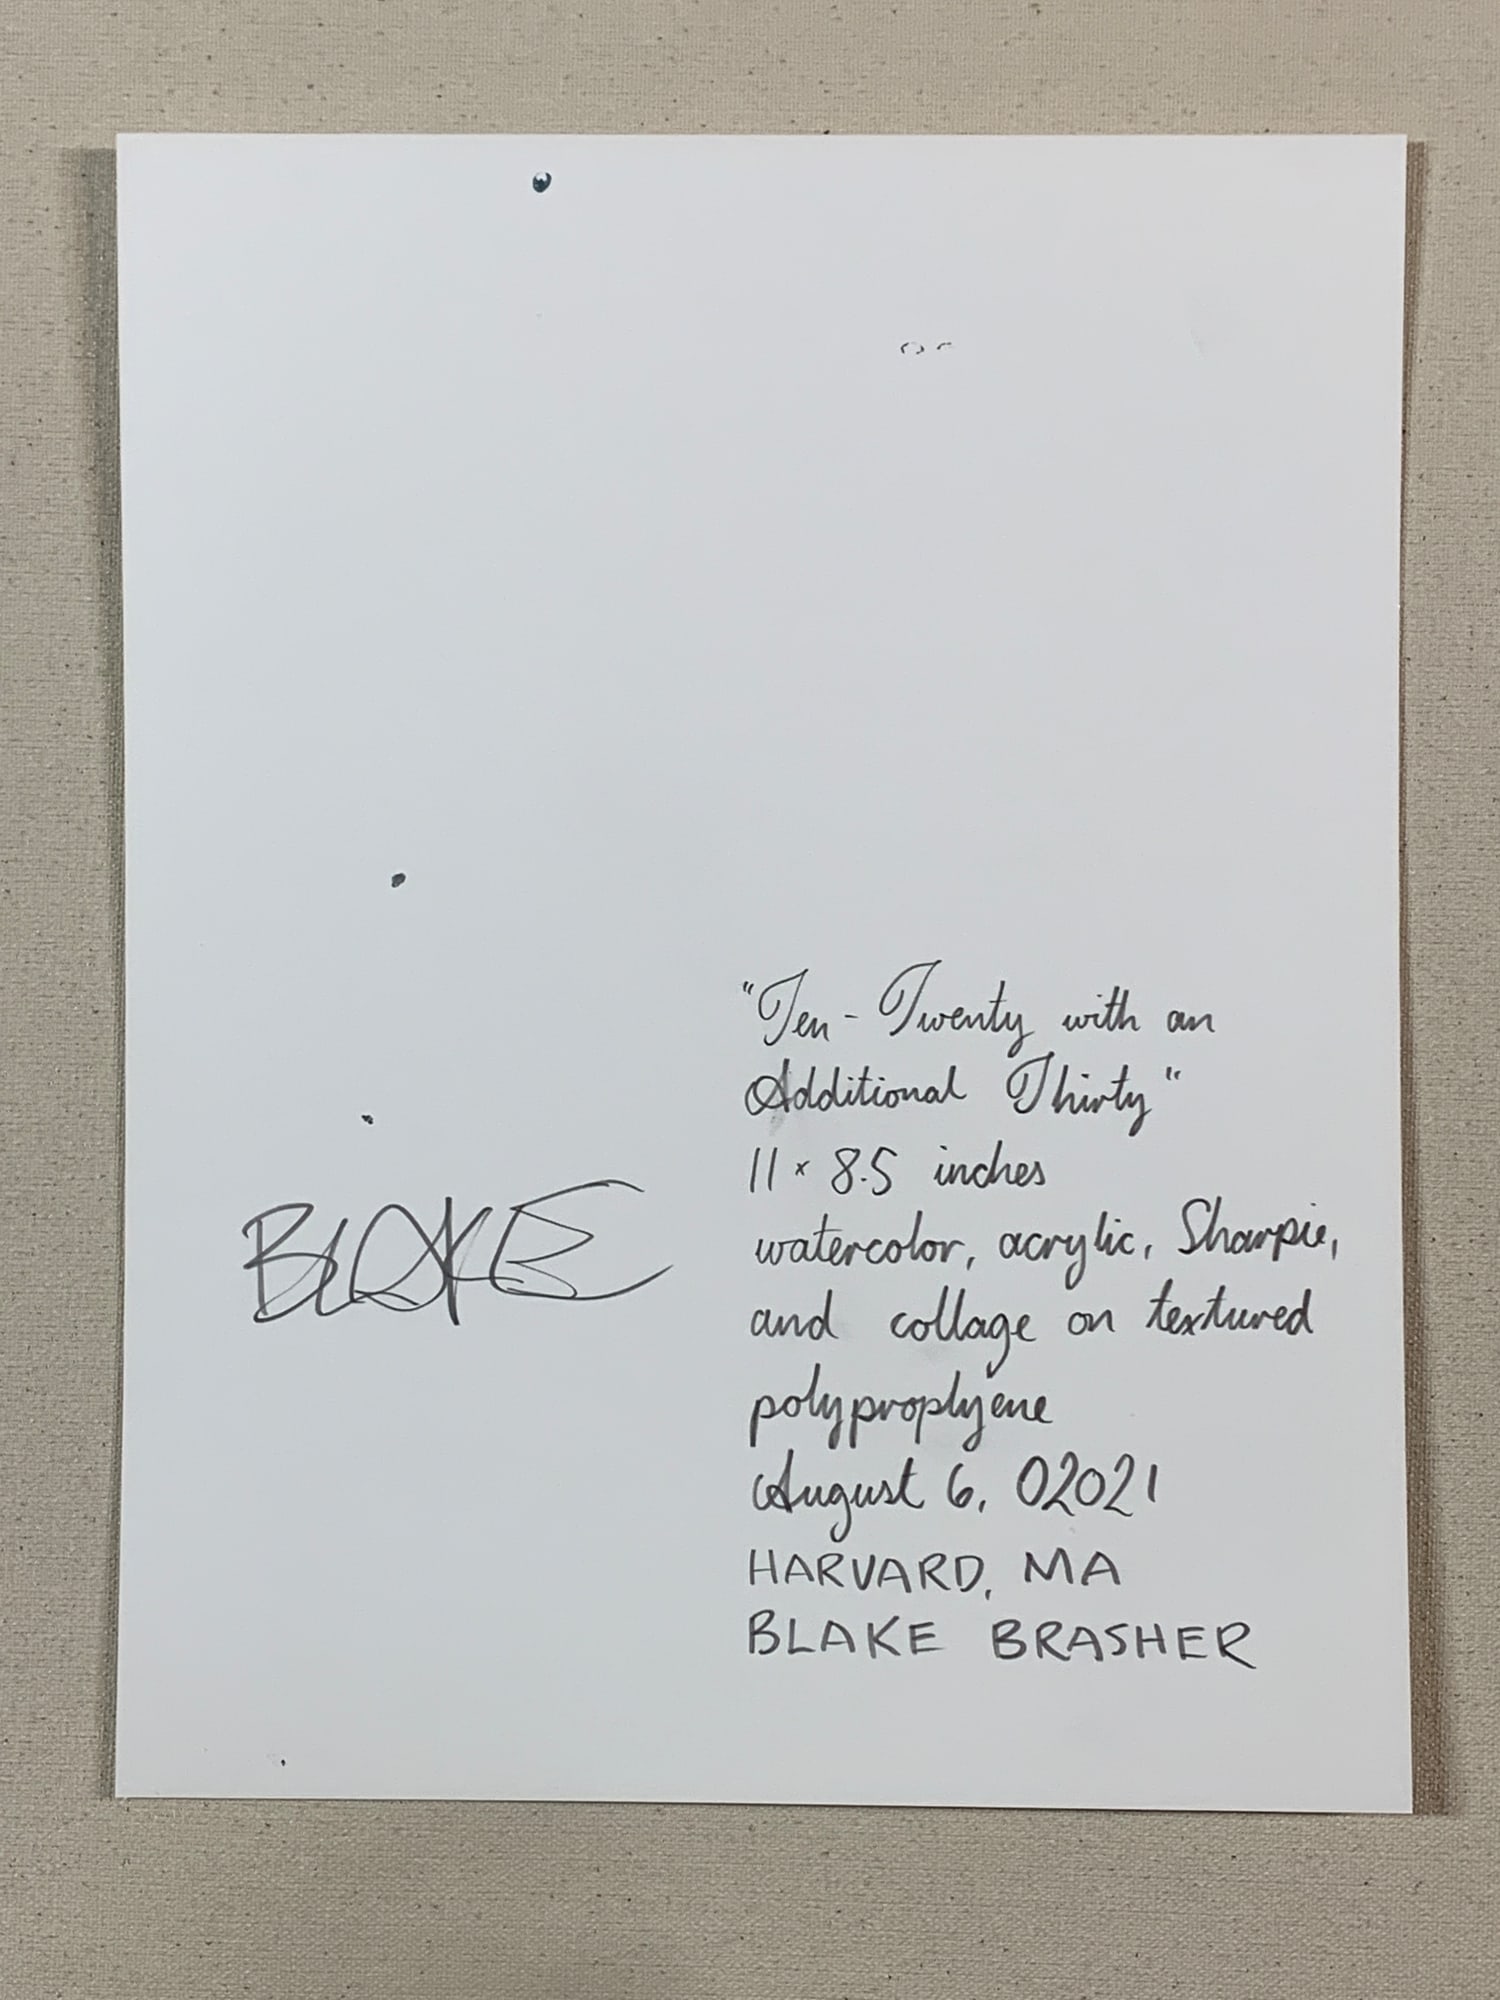 "Ten-Twenty with an
Additional Thirty"
11 × 8.5 inches
watercolor, acrylic, Sharpie,
and collage on textured
polyproplyene
August 6, 02021
HARVARD, MA
BLAKE BRASHER
BLAKE